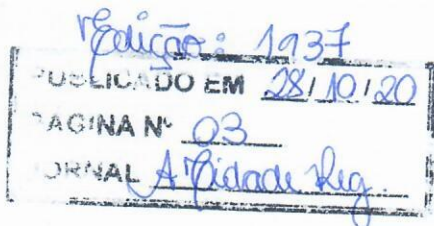 Edição: 1937
PUBLICADO EM 28/10/20
PAGINA Nº 03
JORNAL A Cidade Reg.